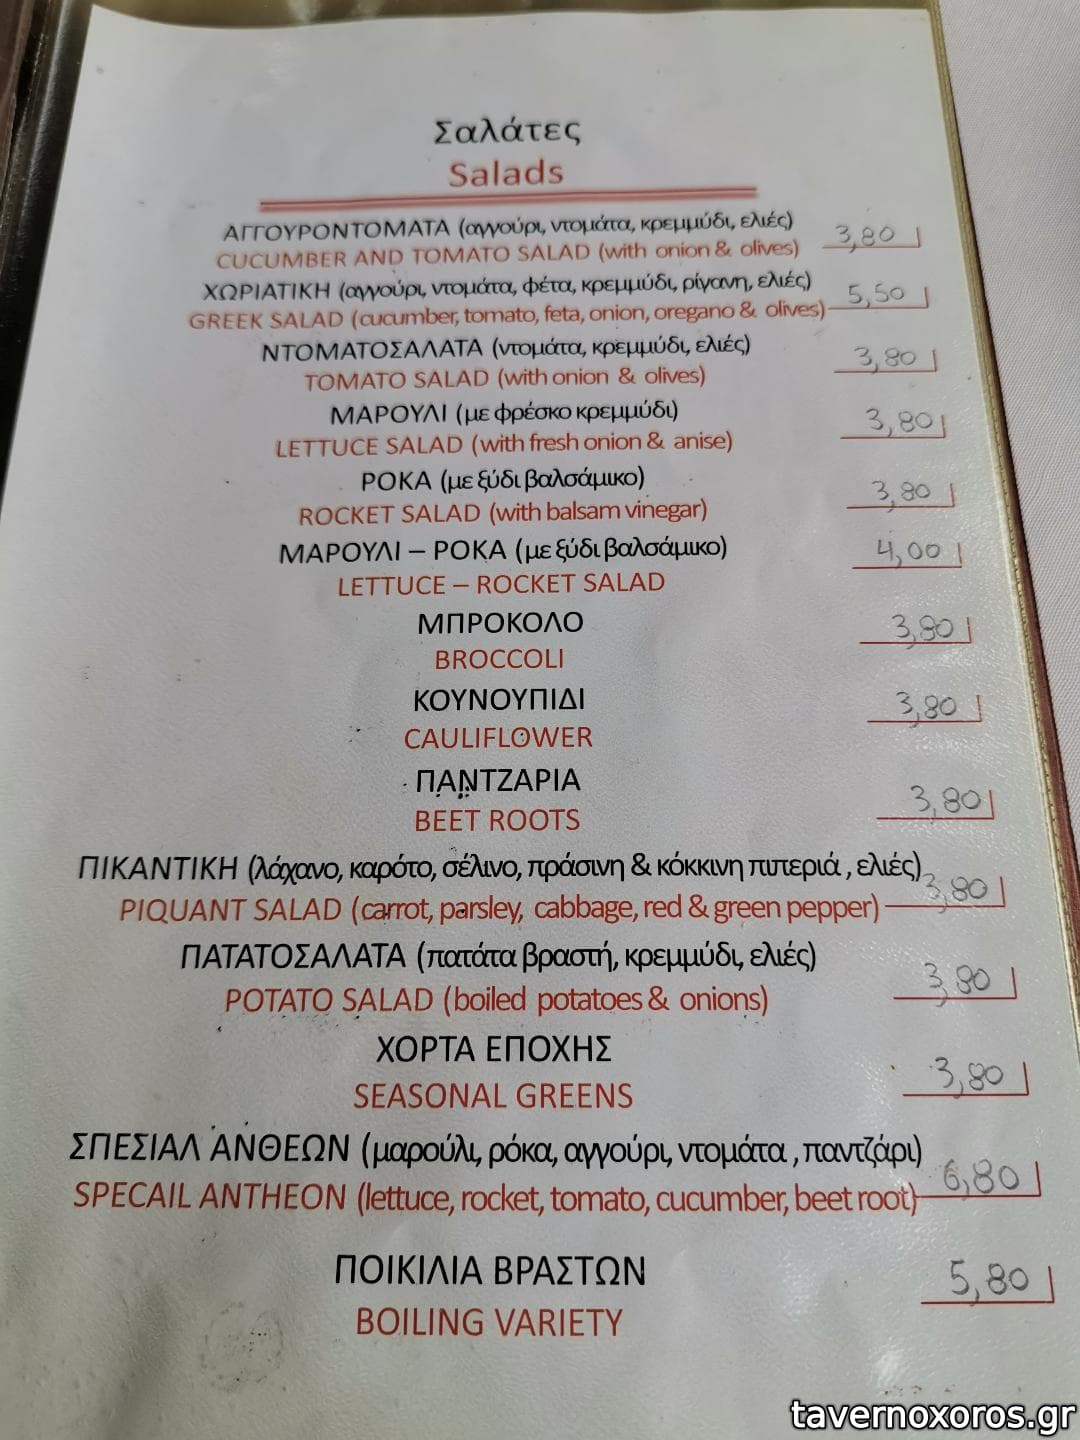 Σαλάτες
Salads
ΑΓΓΟΥΡΟΝΤΟΜΑΤΑ (αγγούρι, ντομάτα, κρεμμύδι, ελιές) 3,80
CUCUMBER AND TOMATO SALAD (with onion & olives)
ΧΩΡΙΑΤΙΚΗ (αγγούρι, ντομάτα, φέτα, κρεμμύδι, ρίγανη, ελιές) 5,50
GREEK SALAD (cucumber, tomato, feta, onion, oregano & olives)
ΝΤΟΜΑΤΟΣΑΛΑΤΑ (ντομάτα, κρεμμύδι, ελιές) 3,80
TOMATO SALAD (with onion & olives)
ΜΑΡΟΥΛΙ (με φρέσκο κρεμμύδι) 3,80
LETTUCE SALAD (with fresh onion & anise)
ΡΟΚΑ (με ξύδι βαλσάμικο) 3,80
ROCKET SALAD (with balsam vinegar)
ΜΑΡΟΥΛΙ – ΡΟΚΑ (με ξύδι βαλσάμικο) 4,00
LETTUCE – ROCKET SALAD
ΜΠΡΟΚΟΛΟ 3,80
BROCCOLI
ΚΟΥΝΟΥΠΙΔΙ 3,80
CAULIFLOWER
ΠΑΝΤΖΑΡΙΑ 3,80
BEET ROOTS
ΠΙΚΑΝΤΙΚΗ (λάχανο, καρότο, σέλινο, πράσινη & κόκκινη πιπεριά , ελιές) 3,80
PIQUANT SALAD (carrot, parsley, cabbage, red & green pepper)
ΠΑΤΑΤΟΣΑΛΑΤΑ (πατάτα βραστή, κρεμμύδι, ελιές) 3,80
POTATO SALAD (boiled potatoes & onions)
ΧΟΡΤΑ ΕΠΟΧΗΣ 3,80
SEASONAL GREENS
ΣΠΕΣΙΑΛ ΑΝΘΕΩΝ (μαρούλι, ρόκα, αγγούρι, ντομάτα , παντζάρι) 6,80
SPECAIL ANTHEON (lettuce, rocket, tomato, cucumber, beet root)
ΠΟΙΚΙΛΙΑ ΒΡΑΣΤΩΝ 5,80
BOILING VARIETY
tavernoxoros.gr